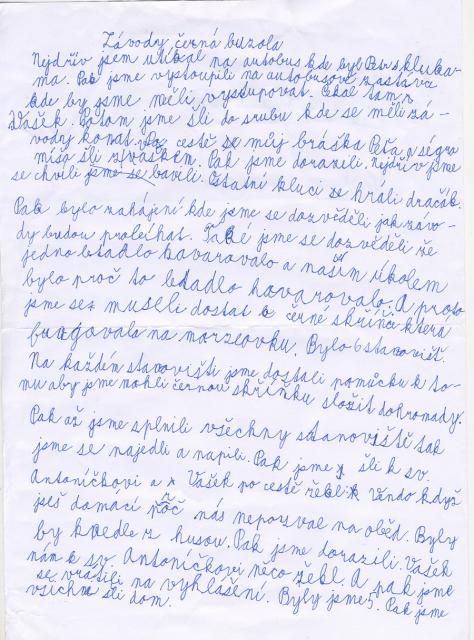 Závody černá buzola
Nejdřív jsem utíkal na autobus kde byl Petr s kluka-
ma. Pak jsme vystoupili na autobusové zastávce
kde by jsme měli vystupovat. Čekal tam
Vašek. Potom jsme šli do srubu kde se měli zá-
vody konat. Na cestě se můj bráška Péťa a ségra
míša šli z vaškem. Pak jsme dorazili. Nejdřív jsme
se chvíli jsme se bavili. Ostatní kluci ze hráli dračák.
Pak bylo zahájení kde jsme se dozvěděli jak závo-
dy budou proleíhat. Také jsme se dozvěděli že
jedno letadlo havarovalo a naším úkolem
bylo proč to letadlo havarovalo. A proto
jsme se museli dostat k černé skříňci která
fungovala na morzeovku. Bylo 6 stanovišť.
Na každém stanovišti jsme dostali pomůcku k to-
mu aby jsme mohli černou skříňku složit dohromady.
Pak až jsme splnili všechny stanoviště tak
jsme se najedli a napili. Pak jsme šli k sv.
Antoníčkovi a Vašek po cestě řekl Vendo když
jseš domácí proč nás nepozval na oběd. Byly
by knedle z husou. Pak jsme dorazili. Vašek
nám k sv. Antoníčkovi něco řekl. A pak jsme
se vrátili na vyhlášení. Byly jsme 5. Pak jsme
všichni šli dom.